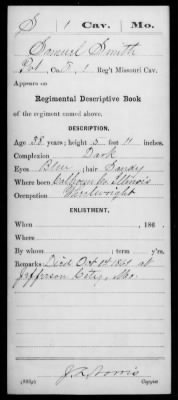 S | 1 | Cav. | Mo.
Samuel Smith
Pvt, Co. B, 1 Reg't Missouri Cav.
Appears on
Regimental Descriptive Book
of the regiment named above.
DESCRIPTION.
Age 38 years; height 5 feet 11 inches.
Complexion Dark
Eyes Blue; hair Sandy
Where born Calhoun Co Illinois
Occupation Wheelwright
ENLISTMENT.
When , 186 .
Where
By whom ; term y'rs.
Remarks: Died Oct 1862 at
Jefferson City, Mo.
J. A. Norris
Copyist